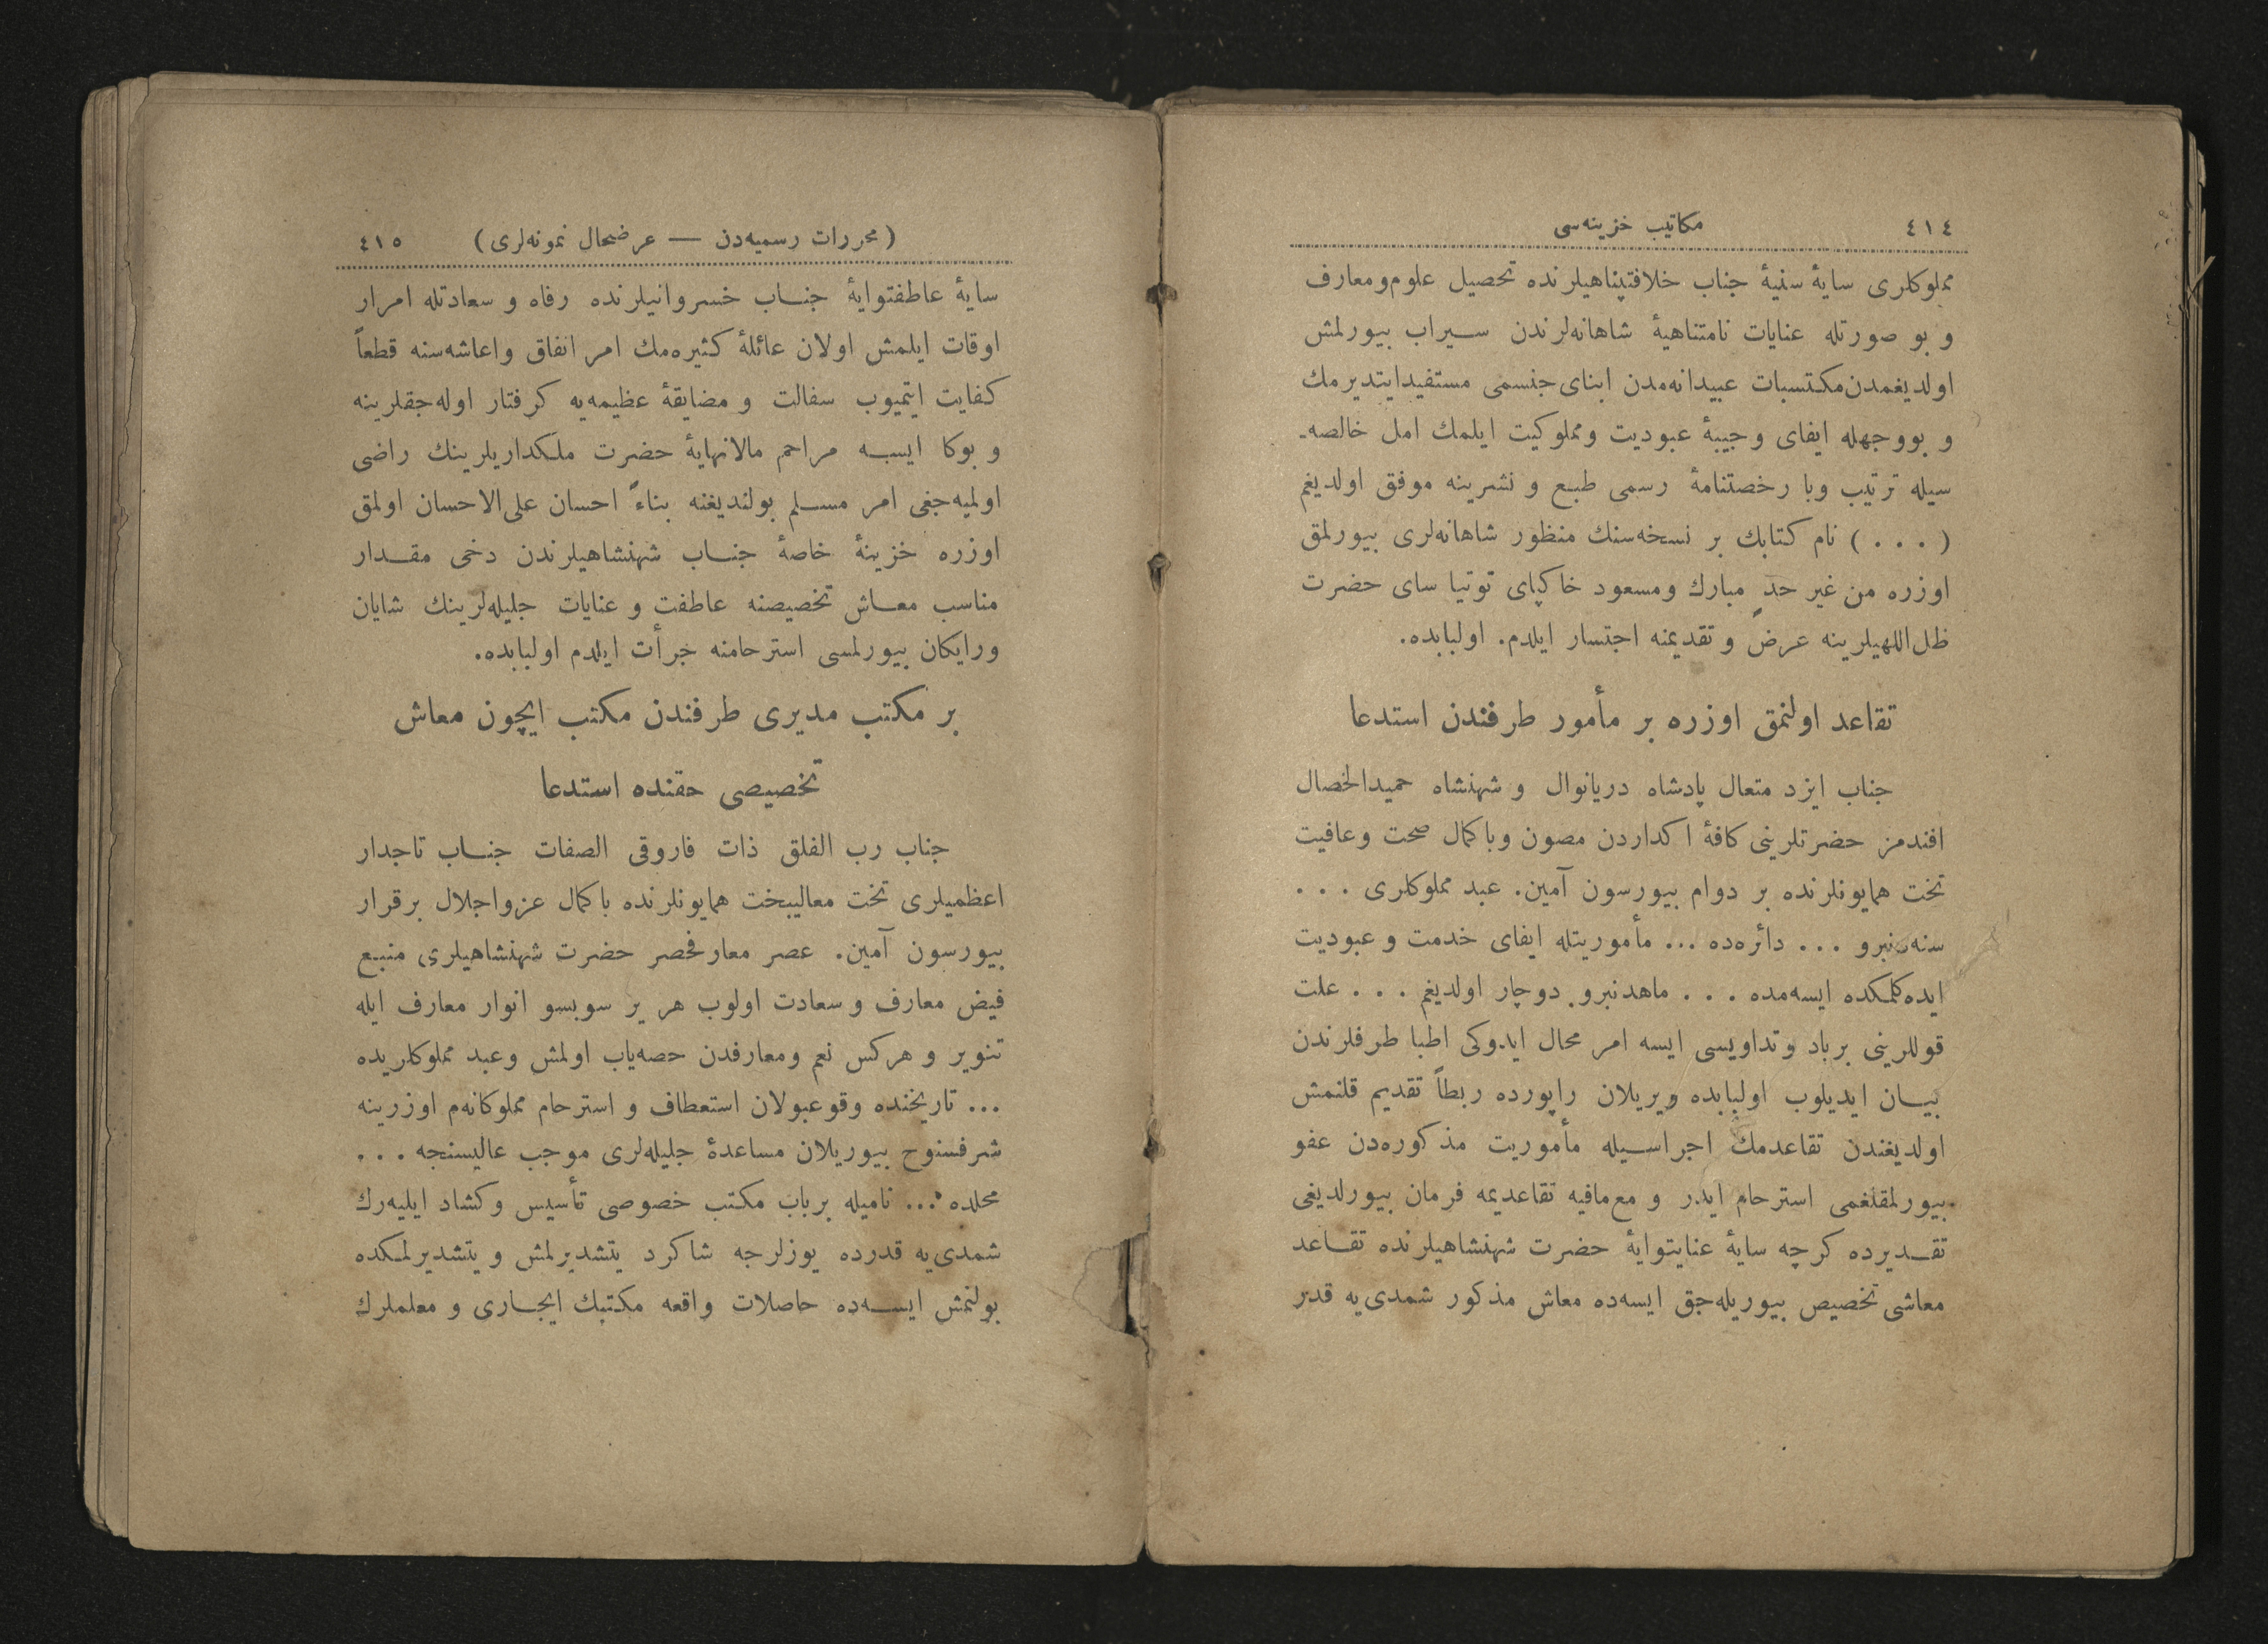 ٤١٤
مكاتيب خزينه‌سی
مملوكلری سايۀ سنيۀ جناب خلافتپناهيلرنده تحصيل علوم‌ومعارف
و بو صورتله عنايات نامتناهيۀ شاهانه‌لرندن سيراب بيورلمش
اولديغمدن‌مكتسبات عبيدانه‌مدن ابنای‌جنسمی مستفيدايتديرمك
و بووجهله ايفای وجيبۀ عبوديت ومملوكيت ايلمك امل خالصه‌ـ
سيله ترتيب وبا رخصتنامۀ رسمی طبع و نشرينه موفق اولديغم
( . . . ) نام كتابك بر نسخه‌سنك منظور شاهانه‌لری بيورلمق
اوزره من غير حدٍ مبارك ومسعود خاكپای توتيا سای حضرت
ظل‌اللهيلرينه عرض و تقديمنه اجتسار ايلدم. اولبابده.
تقاعد اولنمق اوزره بر مأمور طرفندن استدعا
جناب ايزد متعال پادشاه دريانوال و شهنشاه حميدالخصال
افندمز حضرتلرينی كافۀ اكداردن مصون وباكمال صحت وعافيت
تخت همايونلرنده بر دوام بيورسون آمين. عبد مملوكلری . . .
سنه‌دنبرو ... دائره‌ده ... مأموريتله ايفای خدمت و عبوديت
ايده‌كلمكده ايسه‌مده . . . ماهدنبرو دوچار اولديغم . . . علت
قوللرينی برباد وتداويسی ايسه امر محال ايدوكی اطبا طرفلرندن
بيان ايديلوب اولبابده ويريلان راپورده ربطاً تقديم قلنمش
اولديغندن تقاعدمك اجراسيله مأموريت مذكوره‌دن عفو
بيورلمقلغمی استرحام ايدر و مع‌مافيه تقاعديمه فرمان بيورلديغی
تقديرده كرچه سايۀ عنايتوايۀ حضرت شهنشاهيلرنده تقاعد
معاشی تخصيص بيوريله‌جق ايسه‌ده معاش مذكور شمدی‌يه قدر
(محررات رسميه‌دن — عرضحال نمونه‌لری)
٤١٥
سايۀ عاطفتوايۀ جناب خسروانيلرنده رفاه و سعادتله امرار
اوقات ايلمش اولان عائلۀ كثيره‌مك امر انفاق واعاشه‌سنه قطعاً
كفايت ايتميوب سفالت و مضايقۀ عظيمه‌يه كرفتار اوله‌جقلرينه
و بوكا ايسه مراحم مالانهايۀ حضرت ملكداريلرينك راضی
اولميه‌جغی امر مسلم بولنديغنه بناءً احسان علی‌الاحسان اولمق
اوزره خزينۀ خاصۀ جناب شهنشاهيلرندن دخی مقدار
مناسب معاش تخصيصنه عاطفت و عنايات جليله‌لرينك شايان
ورايكان بيورلمسی استرحامنه جرأت ايلدم اولبابده.
بر مكتب مديری طرفندن مكتب ايچون معاش
تخصيصی حقنده استدعا
جناب رب الفلق ذات فاروقی الصفات جناب تاجدار
اعظميلری تخت معاليبخت همايونلرنده باكمال عزواجلال برقرار
بيورسون آمين. عصر معارفحصر حضرت شهنشاهيلری منبع
فيض معارف و سعادت اولوب هر ير سوبسو انوار معارف ايله
تنوير و هركس نعم ومعارفدن حصه‌ياب اولمش وعبد مملوكلريده
... تاريخنده وقوعبولان استعطاف و استرحام مملوكانه‌م اوزرينه
شرفسنوح بيوريلان مساعدۀ جليله‌لری موجب عاليسنجه . . .
محلده ... ناميله برباب مكتب خصوصی تأسيس وكشاد ايليه‌رك
شمدی‌يه قدرده يوزلرجه شاكرد يتشديرلمش و يتشديرلمكده
بولنمش ايسه‌ده حاصلات واقعه مكتبك ايجاری و معلملرك